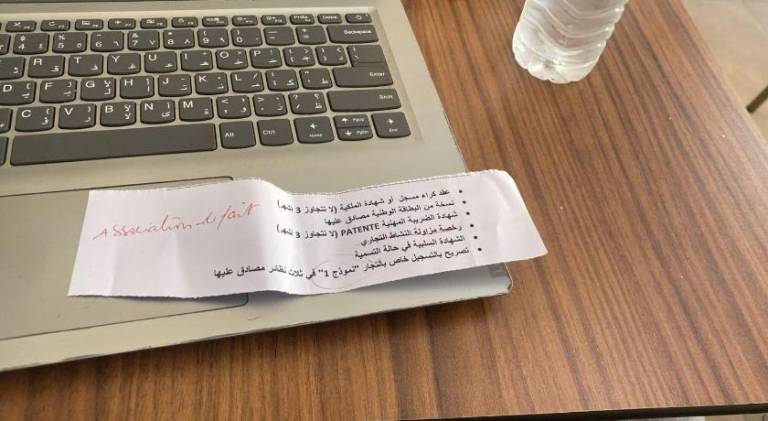 عقد كراء مسجل أو شهادة الملكية (لا تتجاوز 3 أشهر)
نسخة من البطاقة الوطنية مصادق عليها
شهادة الضريبة المهنية PATENTE (لا تتجاوز 3 أشهر)
رخصة مزاولة النشاط التجاري
الشهادة السلبية في حالة التسمية
تصريح بالتسجيل خاص بالتجار "نموذج 1" في ثلاث نظائر مصادق عليها
Association de fait
Backspace
Enter
Shift
Alt
Ctrl
Home
PgUp
PgDn
End